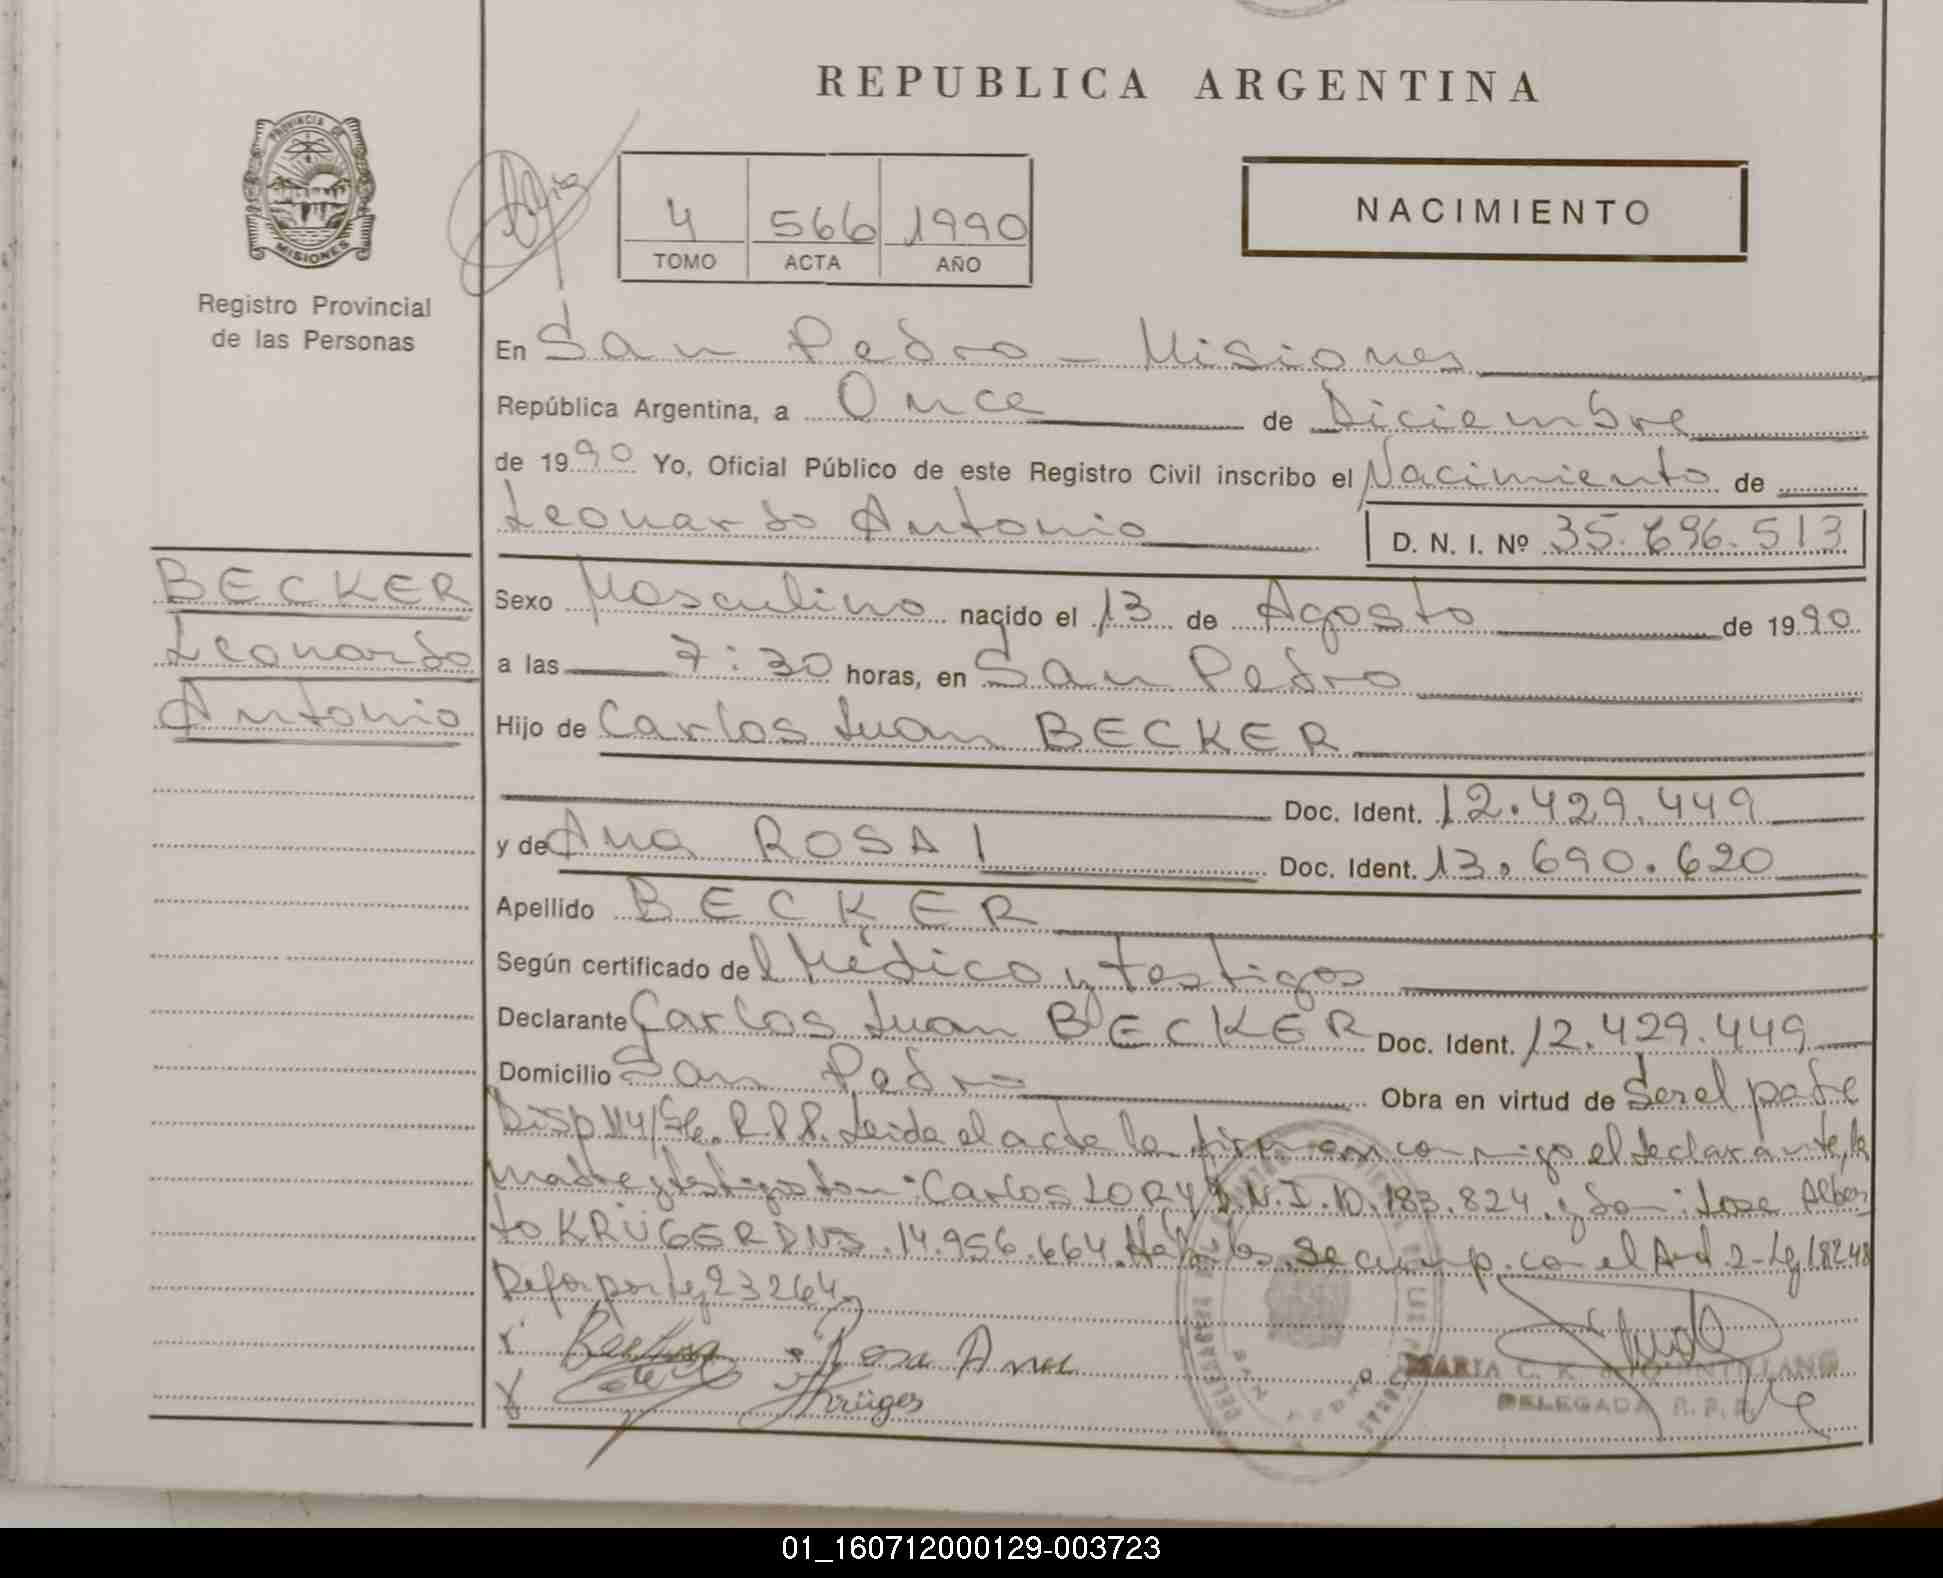 REPUBLICA ARGENTINA
PROVINCIA DE
MISIONES
Registro Provincial
de las Personas
4 566 1990
TOMO ACTA AÑO
NACIMIENTO
En San Pedro - Misiones
República Argentina, a Once de Diciembre
de 1990 Yo, Oficial Público de este Registro Civil inscribo el Nacimiento de
Leonardo Antonio D. N. I. Nº 35.696.513
BECKER
Leonardo
Antonio
Sexo Masculino nacido el 13 de Agosto de 1990
a las 7:30 horas, en San Pedro
Hijo de Carlos Juan BECKER
Doc. Ident. 12.429.449
y de Ana ROSA Doc. Ident. 13.690.620
Apellido BECKER
Según certificado del Médico y testigos
Declarante Carlos Juan BECKER Doc. Ident. 12.429.449
Domicilio San Pedro Obra en virtud de Ser el padre
Disp 114/ R.P.P. Leida el acta la firman conmigo el declarante, la
madre y testigos Carlos LORY D.N.I. 10.183.824. y Don: Jose Alber
to KRÜGER DNI. 14.956.664. Se cump. con el Art 2-Ley 18248
Refor por Ley 23264
Rosa Ana
Krüger
MARIA C. K.
DELEGADA R. P. P.
01_160712000129-003723